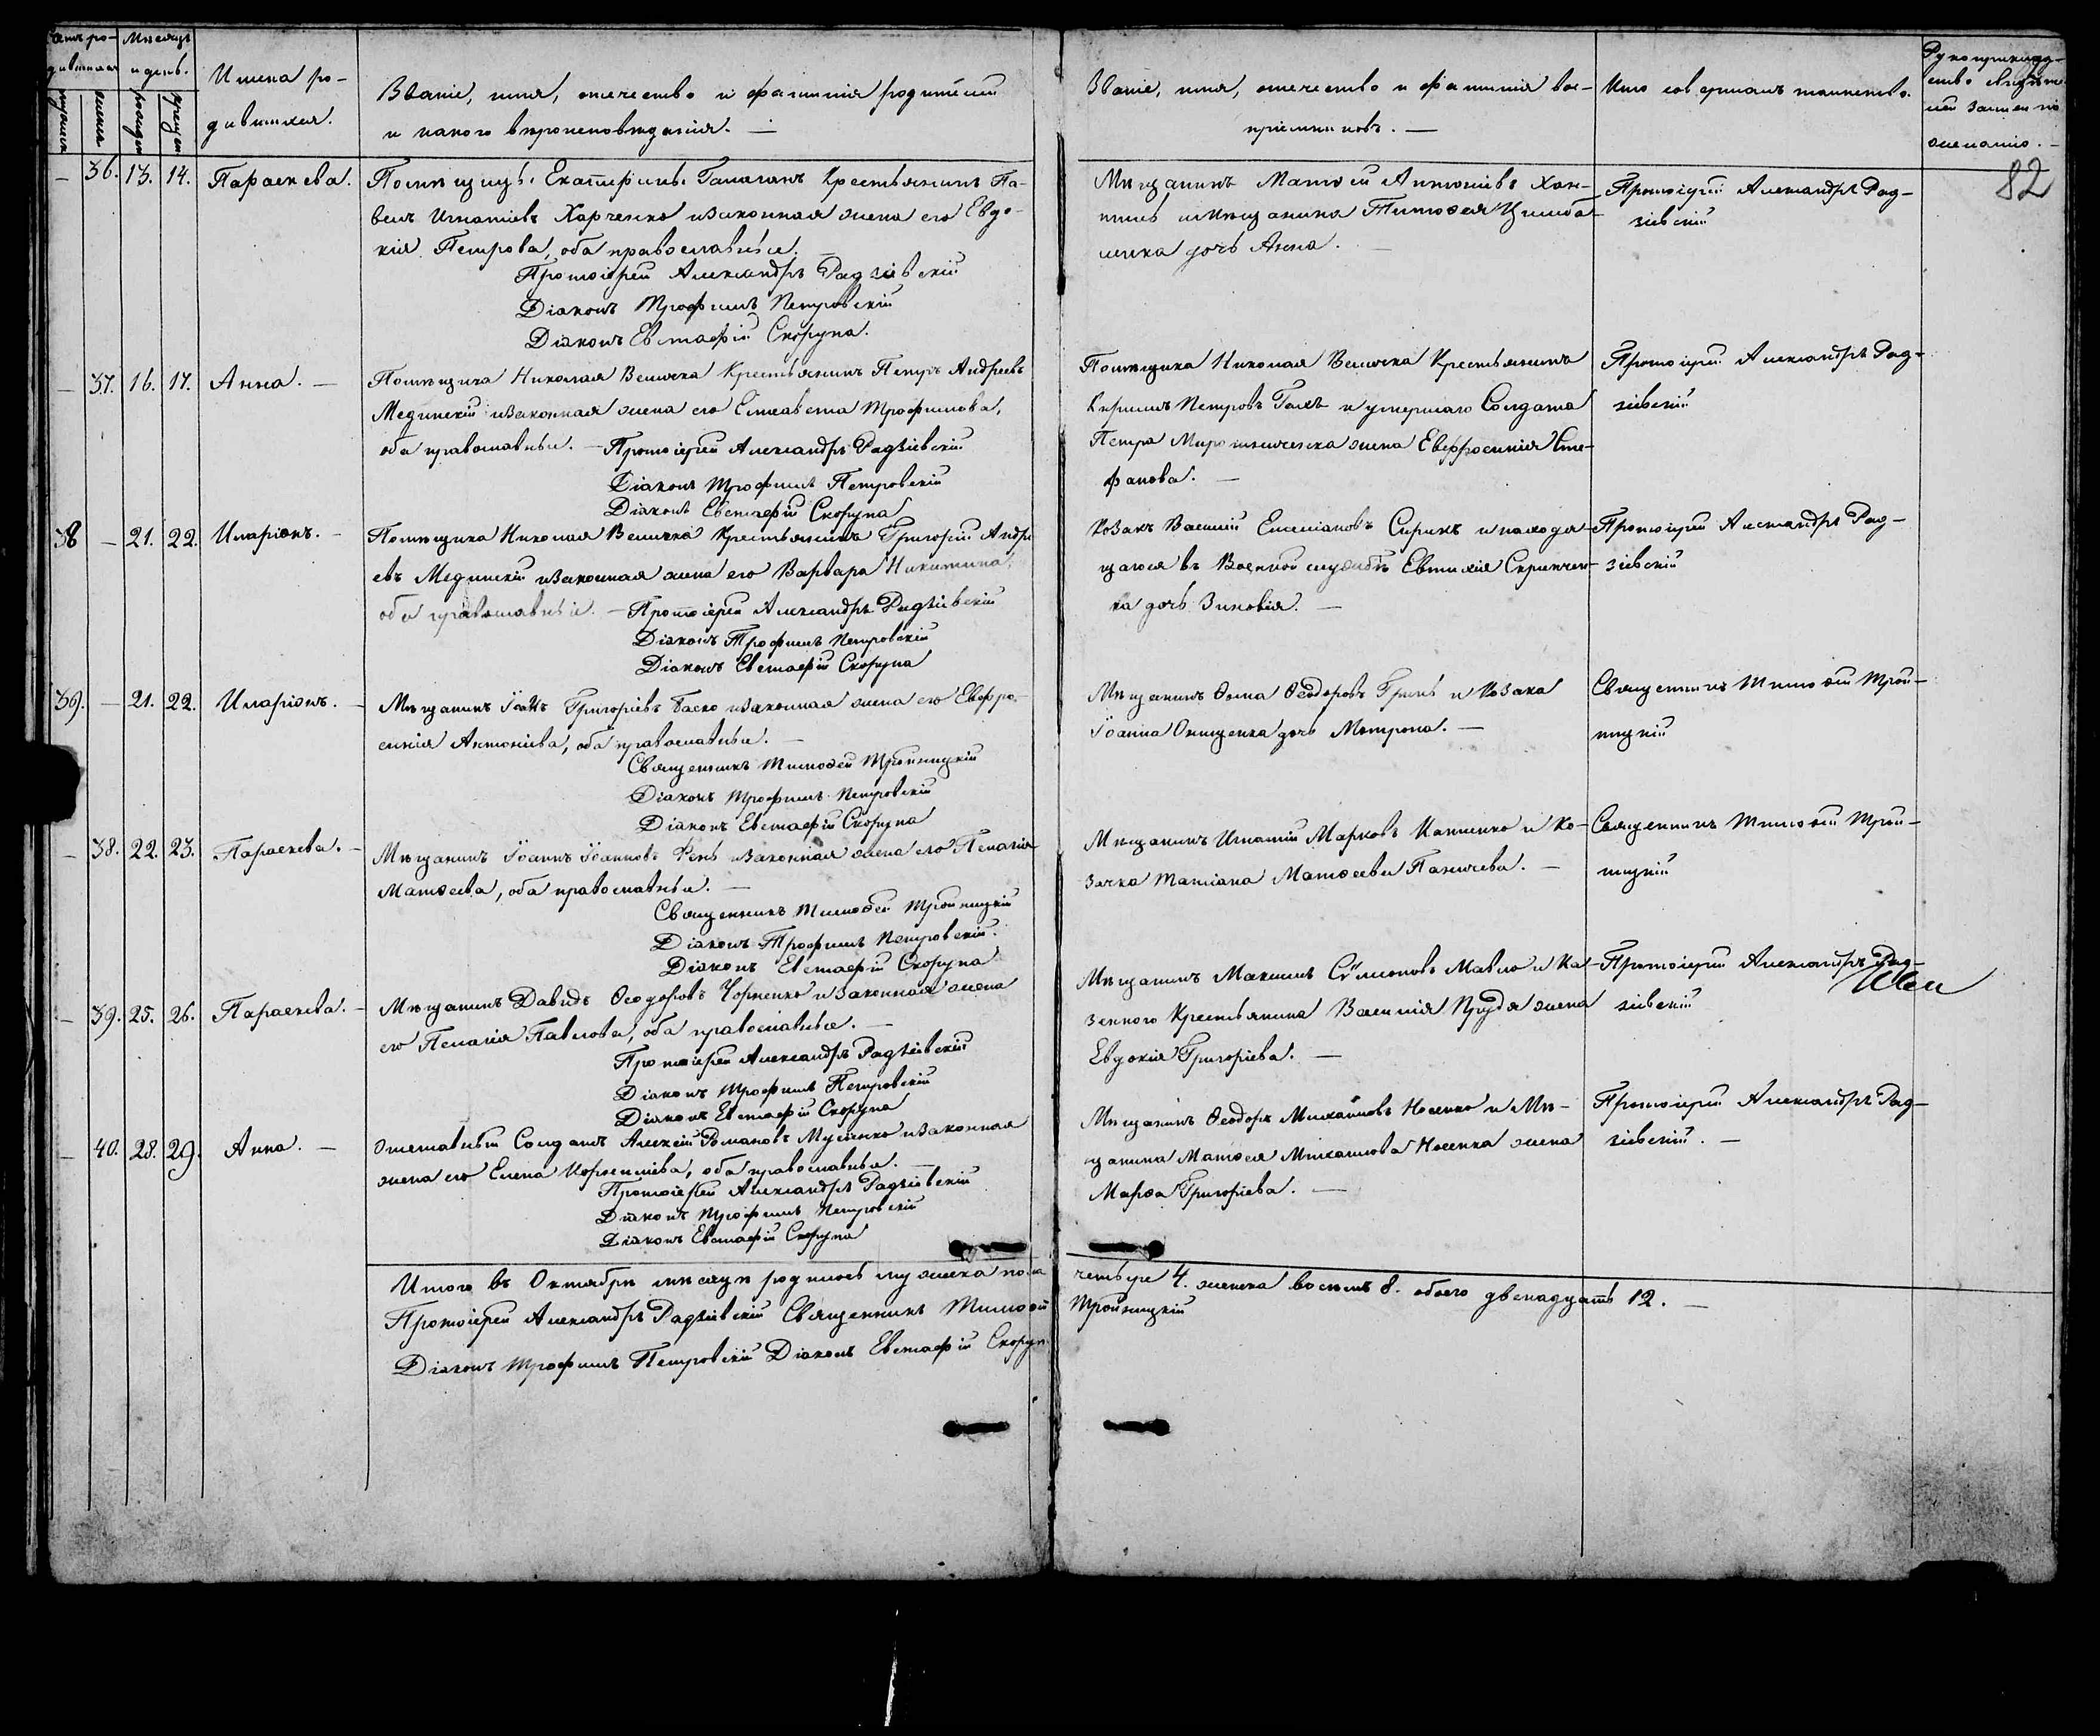 Счетъ ро-
дившихся
Мѣсяцъ
и день.
мужеска
женска
рожден
крещен
Имена ро-
дившихся.
Званіе, имя, отечество и фамилія родителей
и какого вѣроисповѣданія. —
Званіе, имя, отечество и фамилія вос-
пріемниковъ. —
Кто совершалъ таинство.
Рукоприклад-
ство свидѣте-
лей записи по
желанію. —
82
— 36. 13. 14. Параскева.
Помѣщицы Екатерины Галаганъ Крестьянинъ Па-
велъ Игнатіевъ Харченко изаконная жена его Евдо-
кія Петрова, оба православные.
Протоіерей Александръ Радзіевскій
Діаконъ Трофимъ Петровскій
Діаконъ Евстафій Скоруна.
Мѣщанинъ Матѳей Антоніевъ
и Мѣщанина Тимоѳея Цимба-
дочь Анна. —
Протоіерей Александръ Рад-
зіевскій
— 37. 16. 17. Анна. —
Помѣщика Николая Велички Крестьянинъ Петръ Андреевъ
Мединскій изаконная жена его Елисавета Трофимова,
оба православные. — Протоіерей Александръ Радзіевскій
Діаконъ Трофимъ Петровскій
Діаконъ Евстафій Скоруна
Помѣщика Николая Велички Крестьянинъ
Кирилъ Петровъ и умершаго Солдата
Петра Мирошниченка жена Евфросинія Сте-
фанова. —
Протоіерей Александръ Рад-
зіевскій
38 — 21. 22. Иларіонъ. —
Помѣщика Николая Велички Крестьянинъ Григорій Андре
евъ Мединскій изаконная жена его Варвара Никитина,
оба православные. — Протоіерей Александръ Радзіевскій
Діаконъ Трофимъ Петровскій
Діаконъ Евстафій Скоруна
Козакъ Василій Емеліановъ Сирикъ и находя-
щагося въ Военной службѣ Евтихія Скрипчен-
ка дочь Зиновія. —
Протоіерей Александръ Рад-
зіевскій
39. — 21. 22. Иларіонъ. —
Мѣщанинъ Григоріевъ Баско изаконная жена его Евфро-
синія Антоніева, оба православные. —
Священникъ Тимоѳей Тройницкій
Діаконъ Трофимъ Петровскій
Діаконъ Евстафій Скоруна
Мѣщанинъ Ѳома Ѳеодоровъ Гринь и Козака
Іоанна Онищенка дочь Матрона. —
Священникъ Тимоѳей Трой-
ницкій
— 38. 22. 23. Параскева. —
Мѣщанинъ Іоаннъ Іоанновъ изаконная жена его Пелагія
Матѳеева, оба православные. —
Священникъ Тимоѳей Тройницкій
Діаконъ Трофимъ Петровскій.
Діаконъ Евстафій Скоруна
Мѣщанинъ Игнатій Марковъ и Ко-
зачка Татіана Матѳеева —
Священникъ Тимоѳей Трой-
ницкій
— 39. 25. 26. Параскева. —
Мѣщанинъ Давидъ Ѳеодоровъ Чорненко изаконная жена
его Пелагія Павлова, оба православные. —
Протоіерей Александръ Радзіевскій
Діаконъ Трофимъ Петровскій
Діаконъ Евстафій Скоруна
Мѣщанинъ Максимъ Сѵмеоновъ Мавло и Ка-
зенного Крестьянина Василія Прудя жена
Евдокія Григоріева. —
Протоіерей Александръ Рад-
зіевскій
— 40. 28. 29. Анна. —
Отставный Солдатъ Алексій Романовъ Мусіенко изаконная
жена его Елена Корниліева, оба православные. —
Протоіерей Александръ Радзіевскій
Діаконъ Трофимъ Петровскій
Діаконъ Евстафій Скоруна
Мѣщанинъ Ѳеодоръ Михайловъ Носенко и Мѣ-
щанина Матѳея Михайлова Носенка жена
Марѳа Григоріева. —
Протоіерей Александръ Рад-
зіевскій. —
Итого въ Октябрѣ мѣсяцѣ родилось мужеска пола четыре 4. женска восемь 8. обоего двенадцать 12. —
Протоіерей Александръ Радзіевскій Священникъ Тимоѳей Тройницкій
Діаконъ Трофимъ Петровскій Діаконъ Евстафій Скоруна